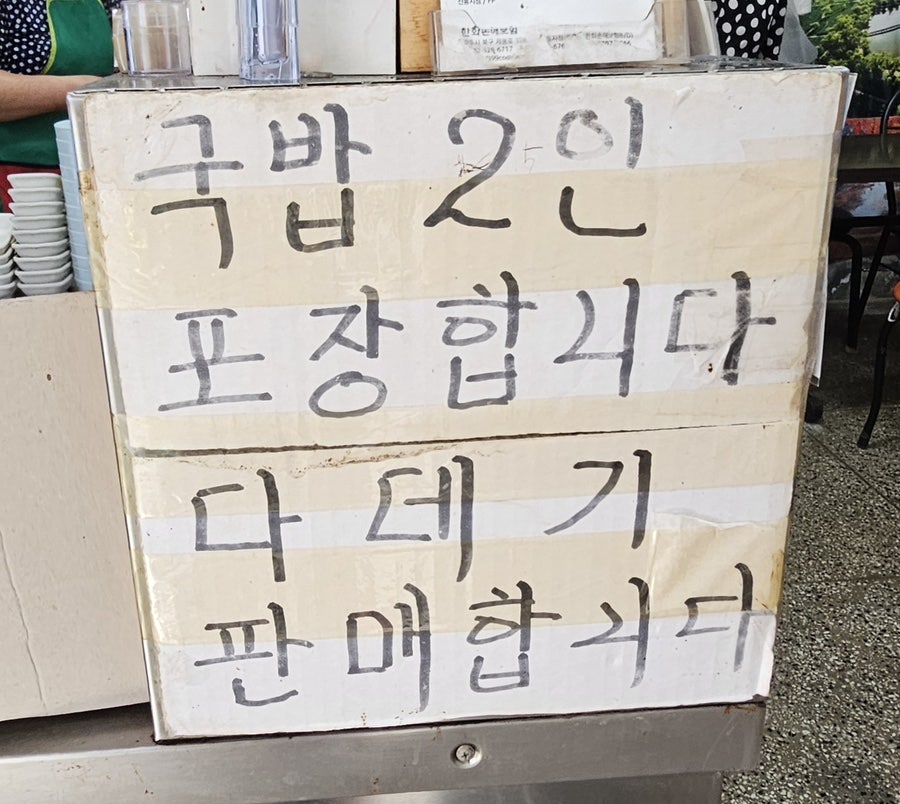 국밥 2인
포장합니다
다데기
판매합니다